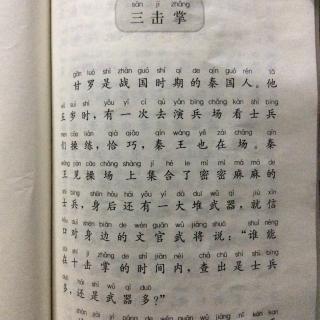 sān jī zhǎng
三击掌
gān luó shì zhàn guó shí qī de qín guó rén tā
甘罗是战国时期的秦国人。他
wǔ suì shí yǒu yí cì qù yǎn bīng chǎng kàn shì bīng
五岁时,有一次去演兵场看士兵
men cāo liàn qià qiǎo qín wáng yě zài chǎng qín
们操练,恰巧,秦王也在场。秦
wáng jiàn cāo chǎng shàng jí hé le mì mì má má de
王见操场上集合了密密麻麻的
shì bīng shēn hòu hái yǒu yí dà duī wǔ qì jiù xìn
士兵,身后还有一大堆武器,就信
kǒu duì shēn biān de wén guān wǔ jiàng shuō shuí néng
口对身边的文官武将说:“谁能
zài shí jī zhǎng de shí jiān nèi chá chū shì shì bīng
在十击掌的时间内,查出是士兵
duō hái shì wǔ qì duō
多,还是武器多?”